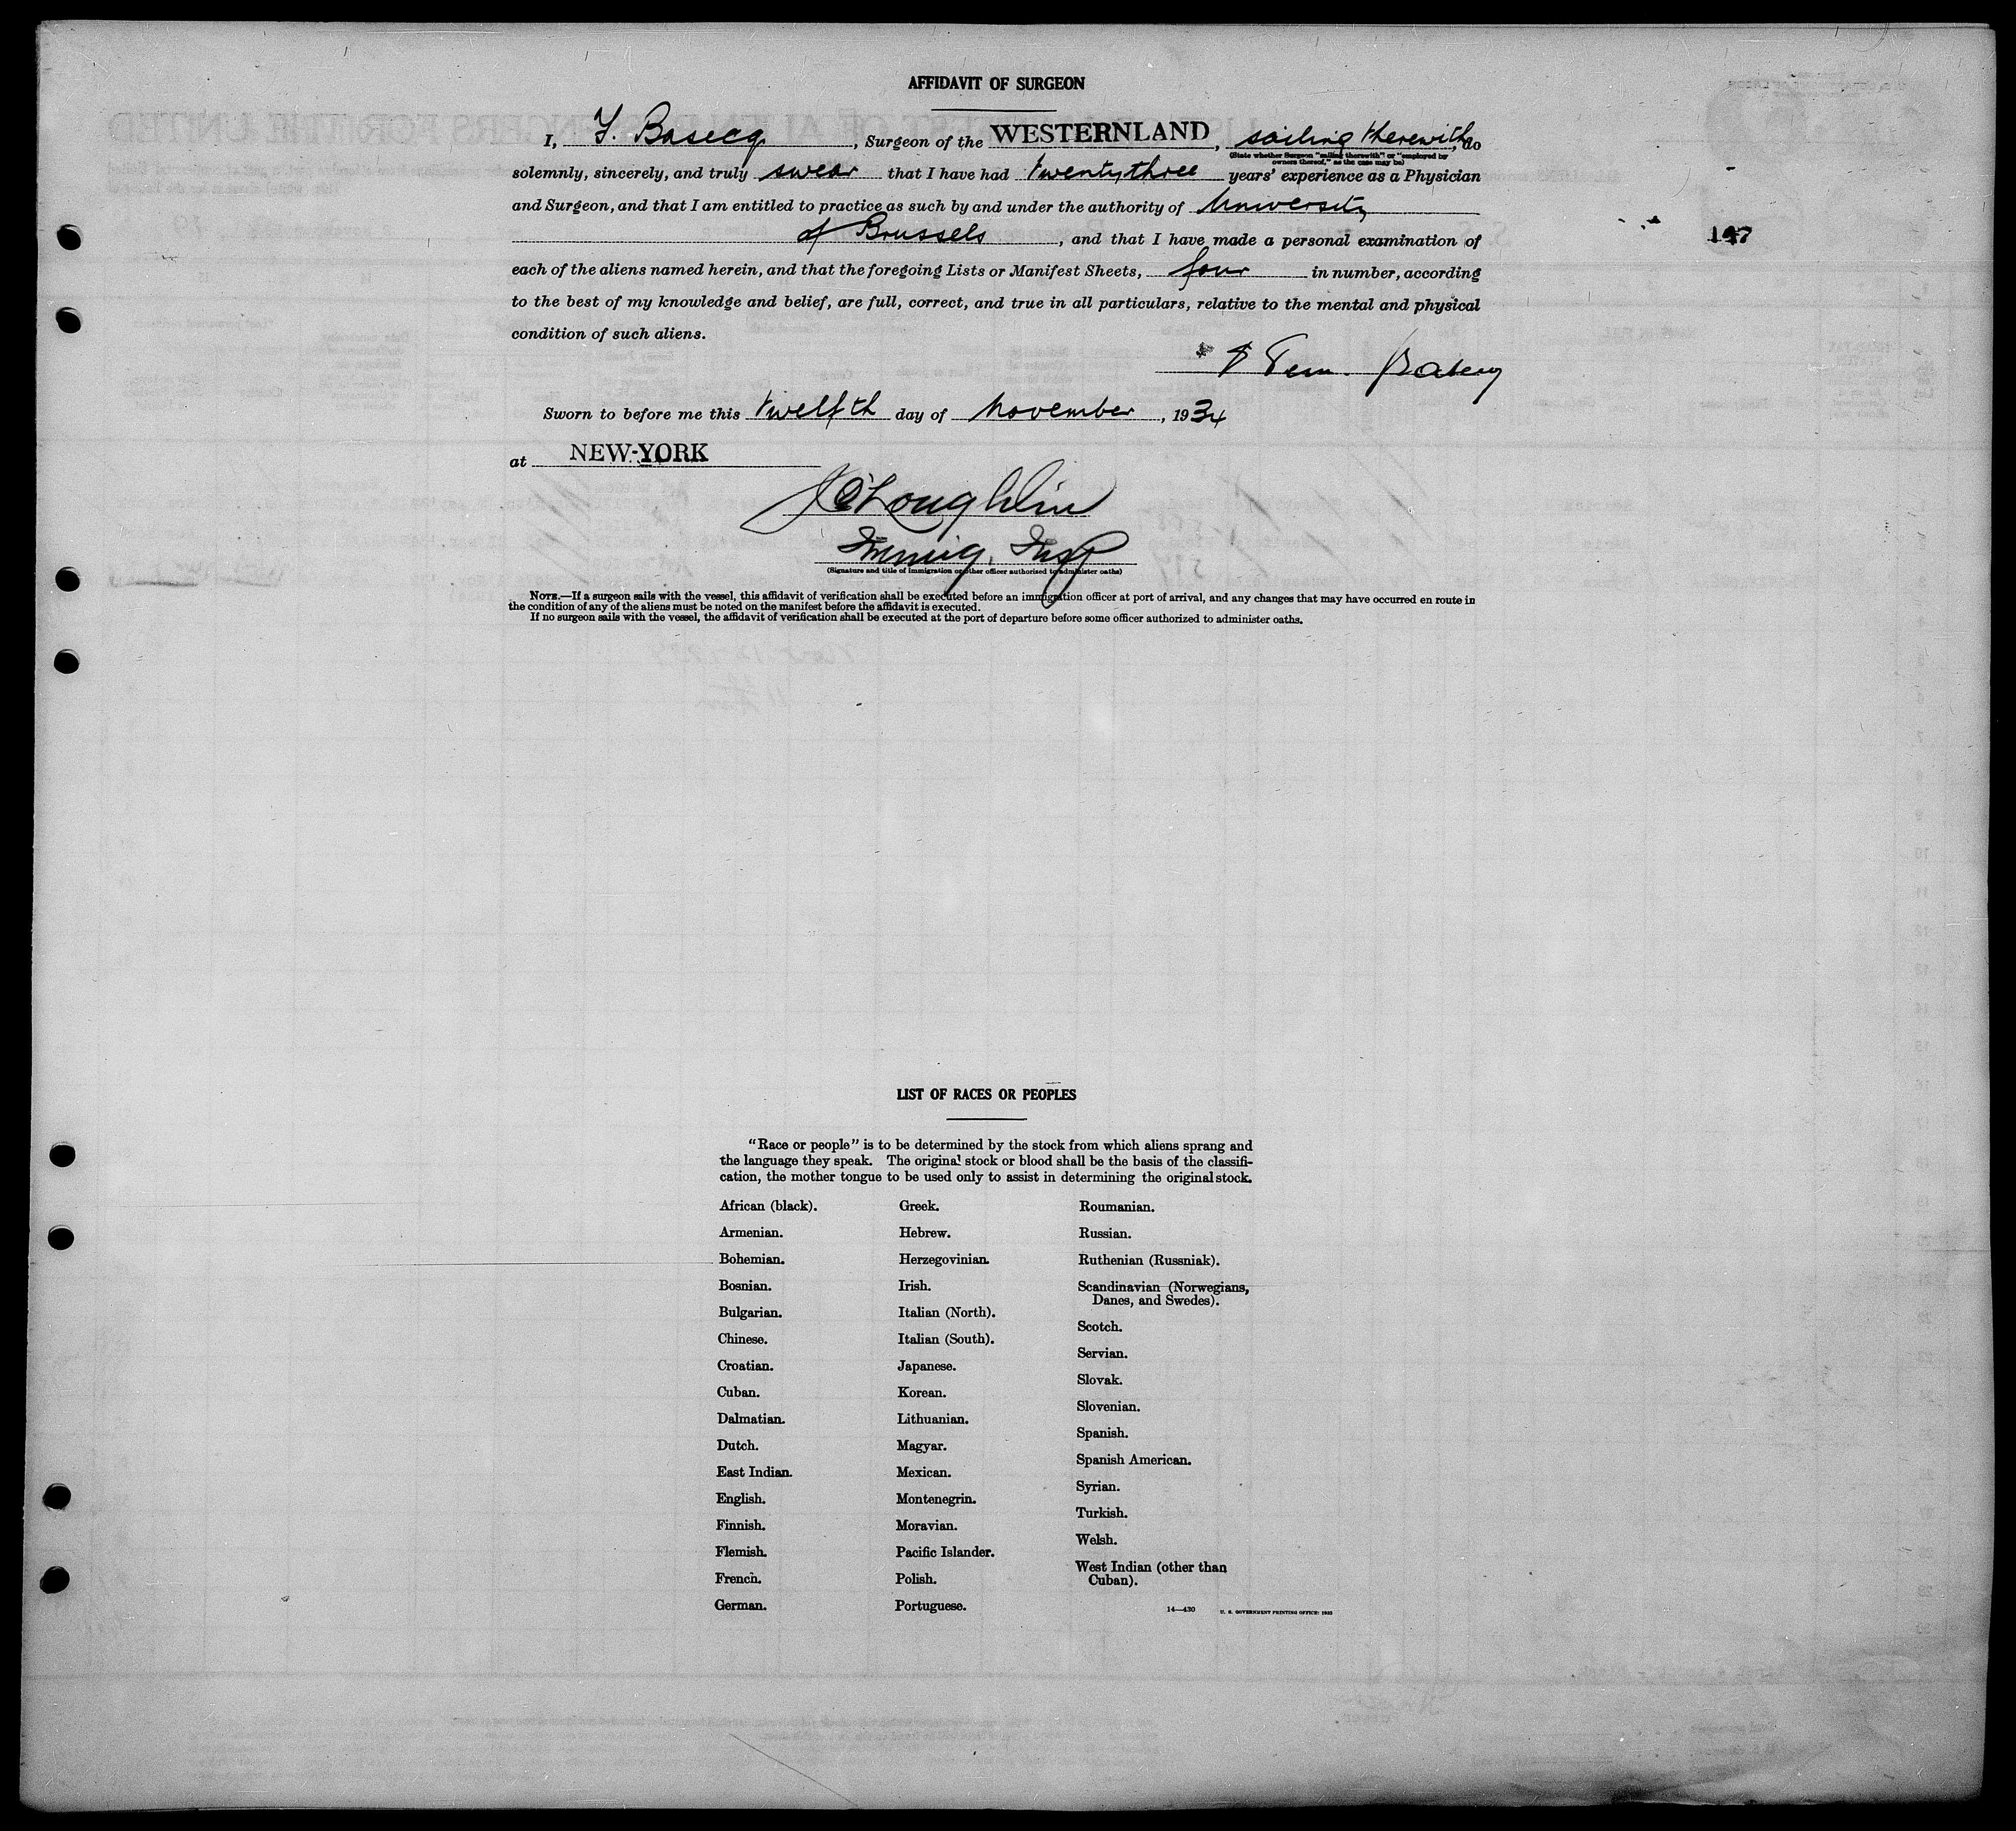 AFFIDAVIT OF SURGEON
I, , Surgeon of the WESTERNLAND, sailing therewith, do
(State whether Surgeon "sailing therewith" or "employed by
owners thereof," as the case may be)
solemnly, sincerely, and truly swear that I have had twenty three years' experience as a Physician
and Surgeon, and that I am entitled to practice as such by and under the authority of University
of Brussels, and that I have made a personal examination of
147
each of the aliens named herein, and that the foregoing Lists or Manifest Sheets, four in number, according
to the best of my knowledge and belief, are full, correct, and true in all particulars, relative to the mental and physical
condition of such aliens.
Sworn to before me this twelfth day of November, 1934
at NEW-YORK
J O'Loughlin
Immig. Insp
(Signature and title of immigration or other officer authorized to administer oaths)
NOTE.—If a surgeon sails with the vessel, this affidavit of verification shall be executed before an immigration officer at port of arrival, and any changes that may have occurred en route in
the condition of any of the aliens must be noted on the manifest before the affidavit is executed.
If no surgeon sails with the vessel, the affidavit of verification shall be executed at the port of departure before some officer authorized to administer oaths.
LIST OF RACES OR PEOPLES
"Race or people" is to be determined by the stock from which aliens sprang and
the language they speak. The original stock or blood shall be the basis of the classifi-
cation, the mother tongue to be used only to assist in determining the original stock.
African (black).
Armenian.
Bohemian.
Bosnian.
Bulgarian.
Chinese.
Croatian.
Cuban.
Dalmatian.
Dutch.
East Indian.
English.
Finnish.
Flemish.
French.
German.
Greek.
Hebrew.
Herzegovinian.
Irish.
Italian (North).
Italian (South).
Japanese.
Korean.
Lithuanian.
Magyar.
Mexican.
Montenegrin.
Moravian.
Pacific Islander.
Polish.
Portuguese.
Roumanian.
Russian.
Ruthenian (Russniak).
Scandinavian (Norwegians,
Danes, and Swedes).
Scotch.
Servian.
Slovak.
Slovenian.
Spanish.
Spanish American.
Syrian.
Turkish.
Welsh.
West Indian (other than
Cuban).
14—430 U. S. GOVERNMENT PRINTING OFFICE: 1933